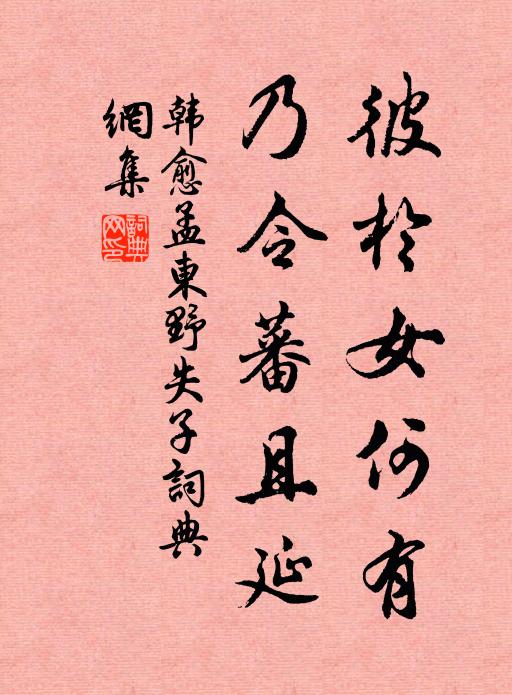 彼於女何有
乃令蕃且延
韩愈孟東野失子詞典
網集
詞典网印